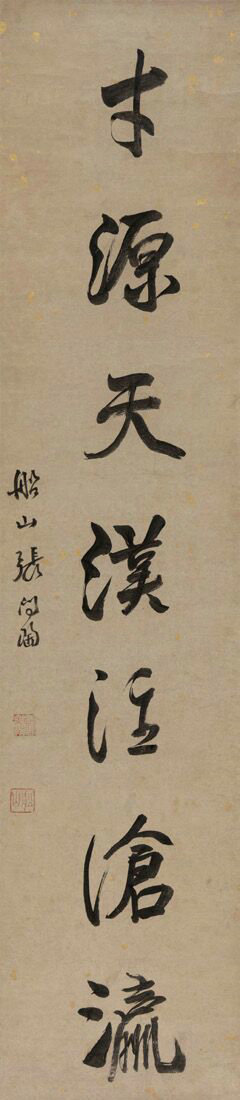 才源天漢注滄瀛
船山張問陶